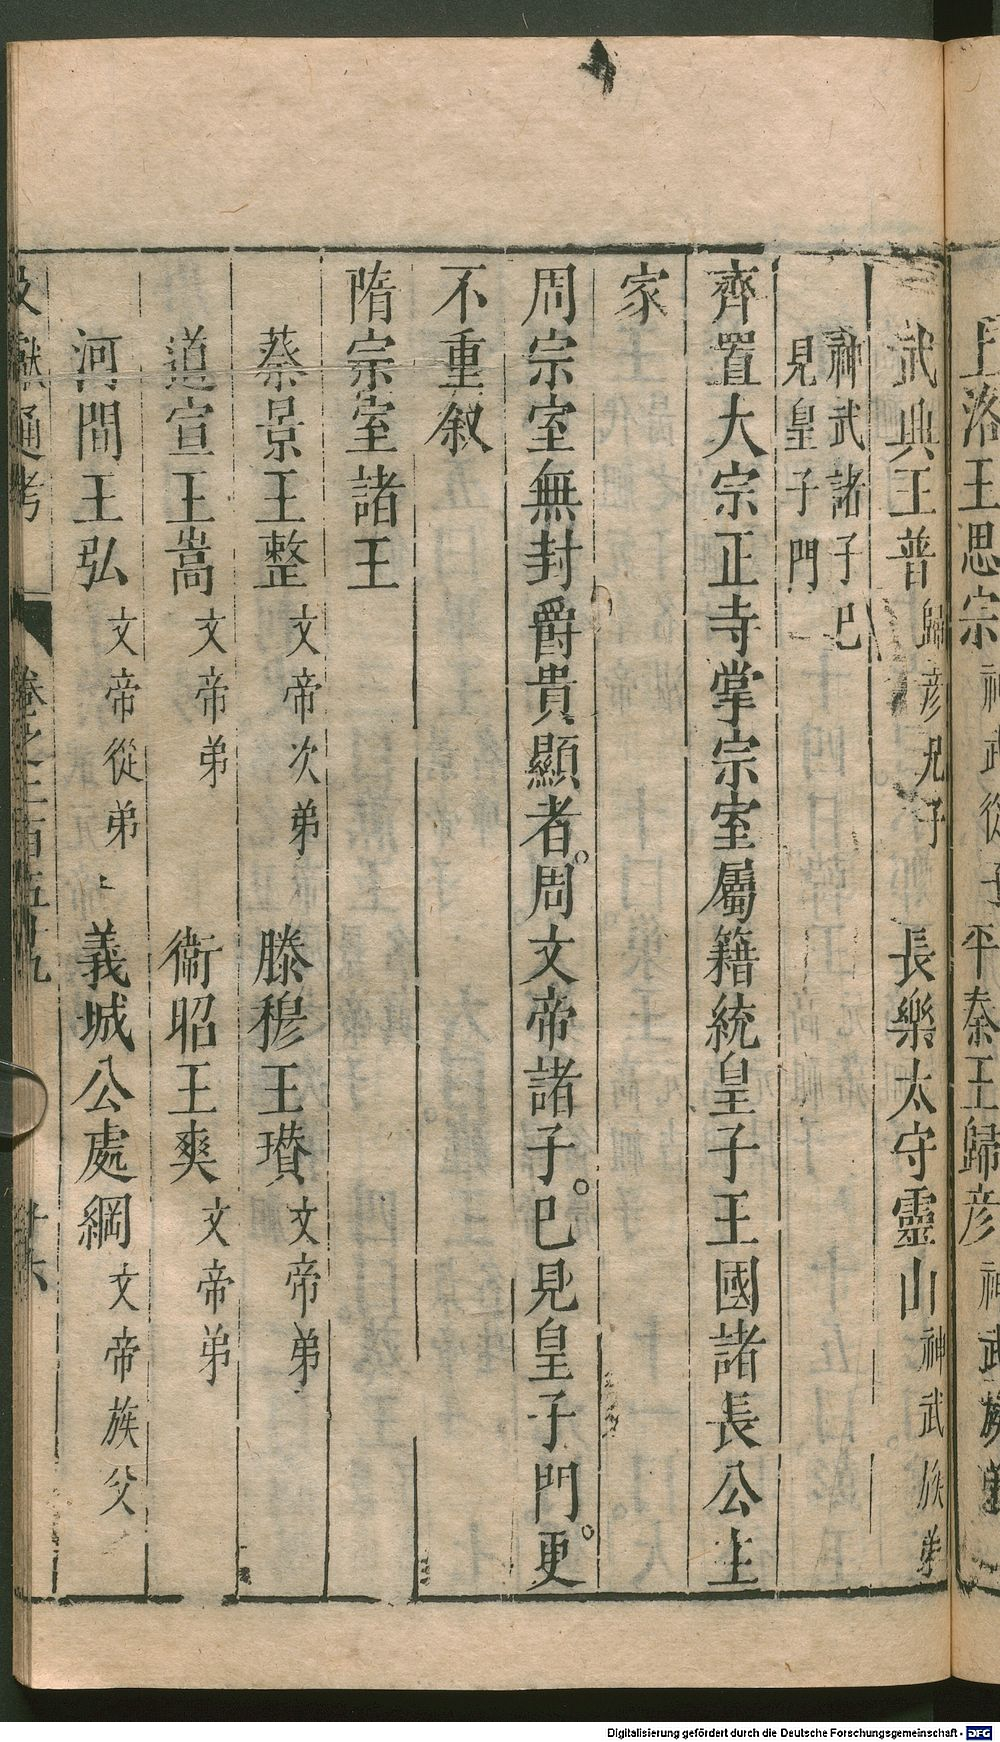 上洛王思宗神武從子 平秦王歸彦神武族弟
武興王普歸彦兄子 長樂太守靈山神武族弟
神武諸子已
見皇子門
齊置大宗正寺掌宗室屬籍統皇子王國諸長公主
家
周宗室無封爵貴顯者。周文帝諸子。已見皇子門。更
不重叙
隋宗室諸王
蔡景王整文帝次弟 滕穆王瓚文帝弟
道宣王嵩文帝弟 衞昭王爽文帝弟
河間王弘文帝從弟 義城公處綱文帝族父
文獻通考 卷之二百五十九 廿六
Digitalisierung gefördert durch die Deutsche Forschungsgemeinschaft - DFG